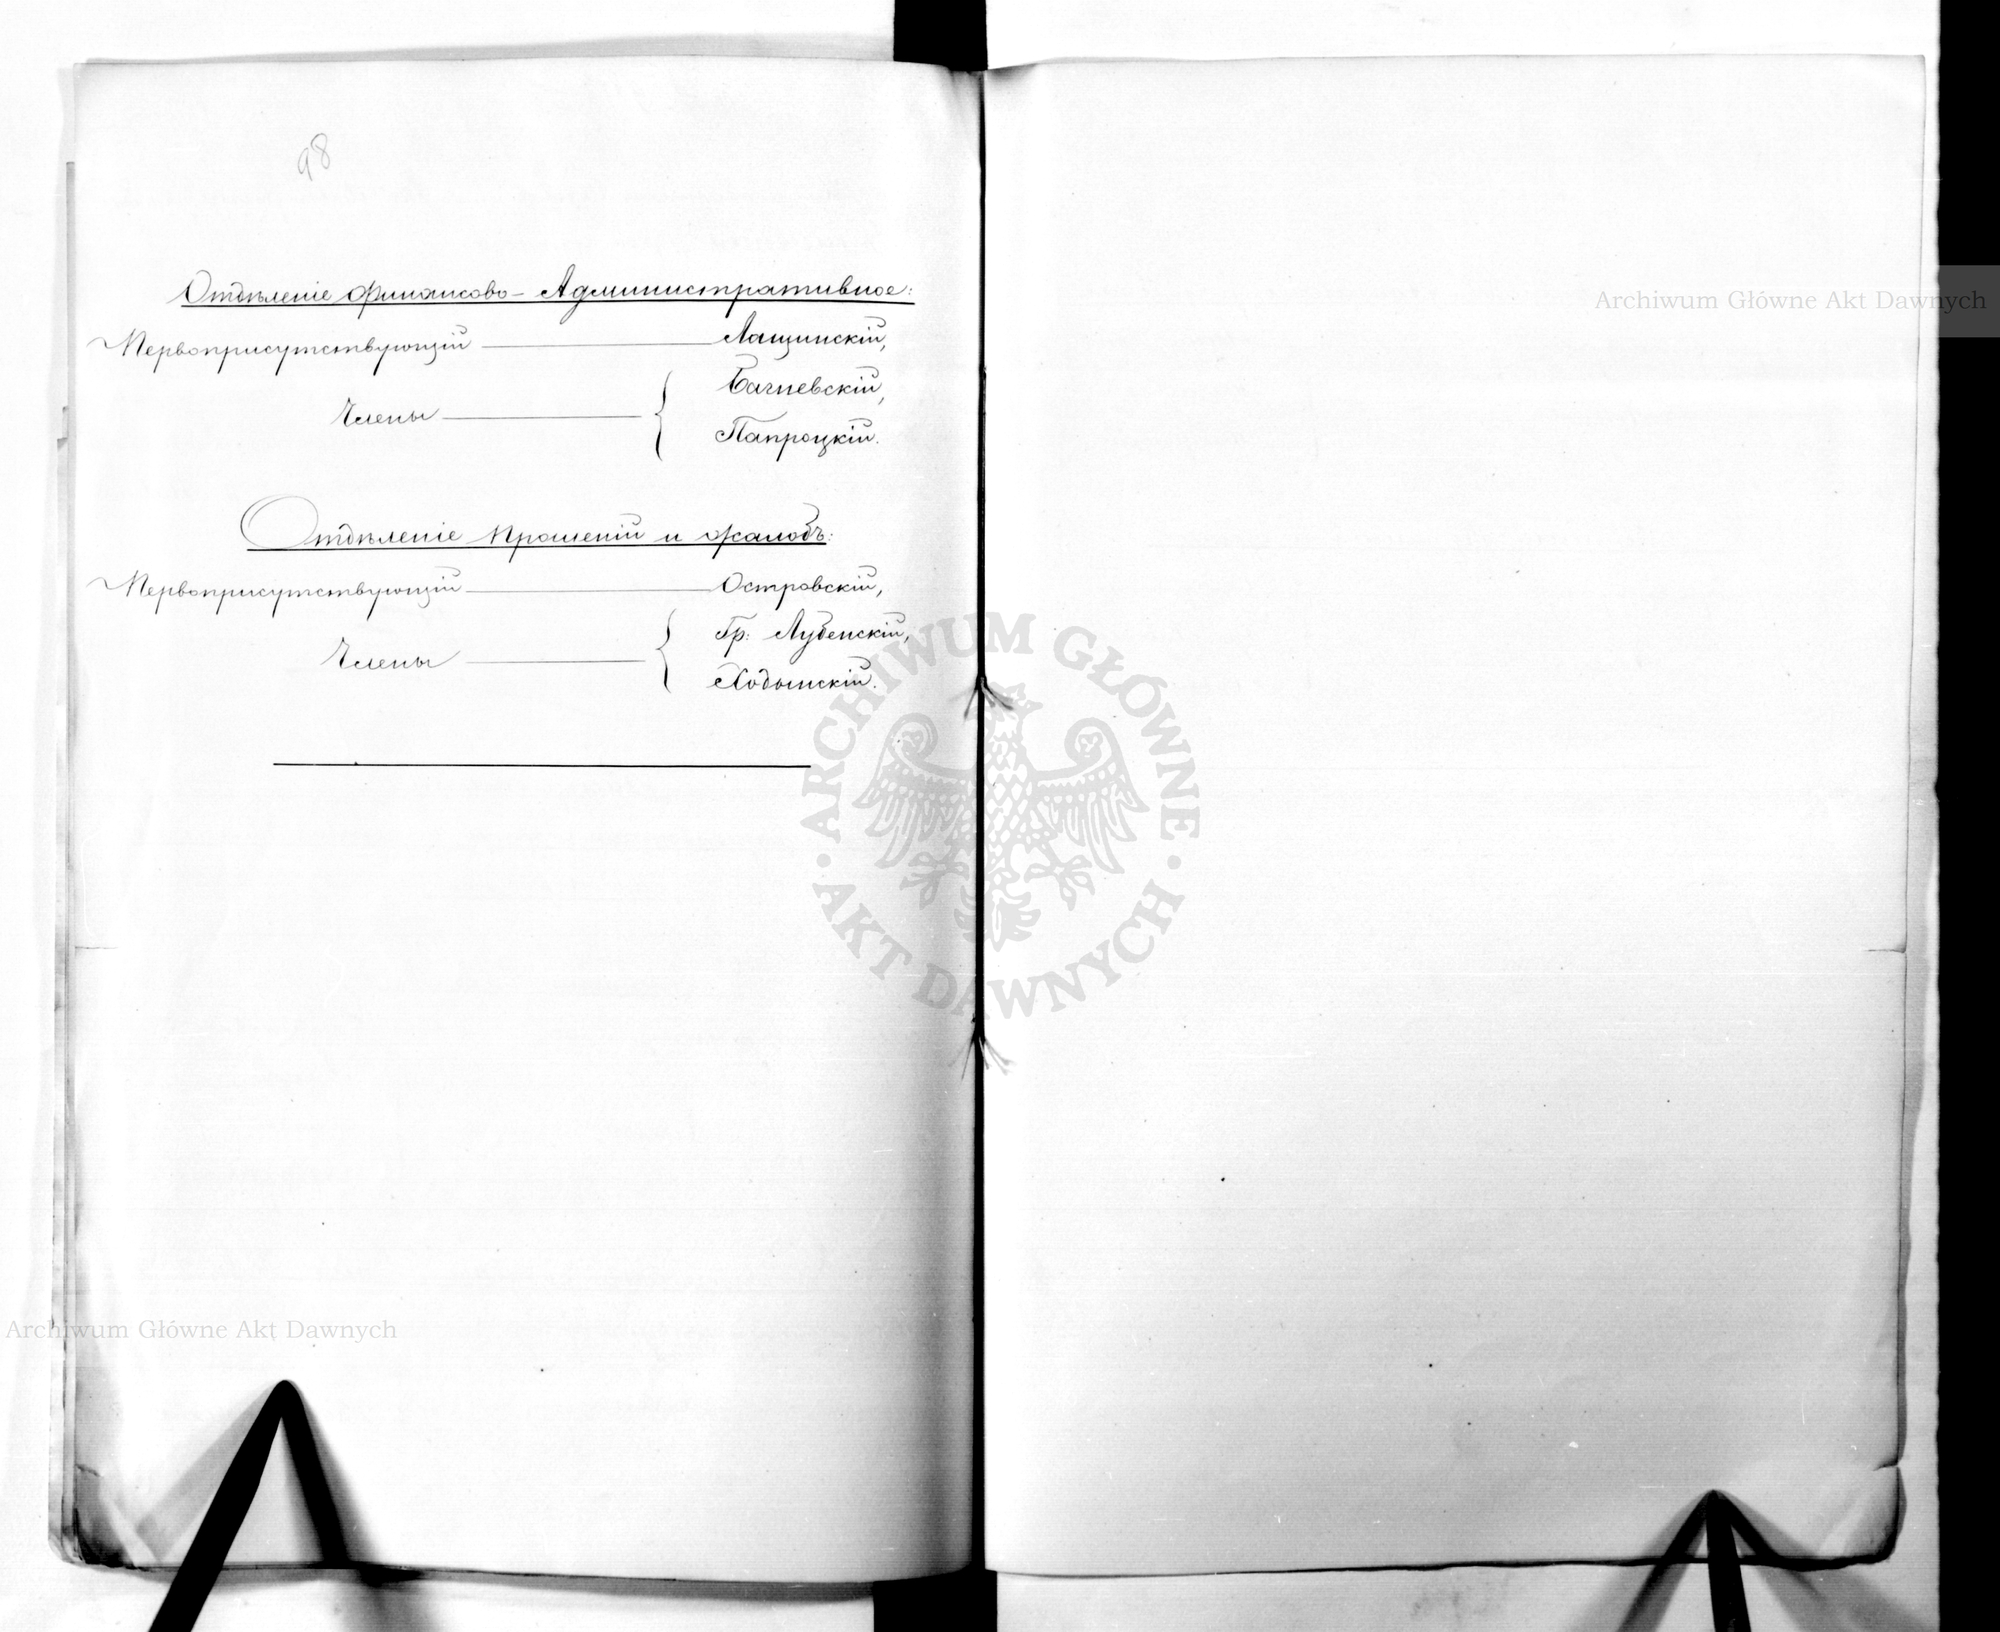 98
Отдѣленіе Финансово-Административное:
Первоприсутствующій — Лащинскій,
Члены — { Багневскій,
Папроцкій.
Отдѣленіе Прошеній и Жалобъ:
Первоприсутствующій — Островскій,
Члены — { Гр: Лубенскій,
Ходынскій.
Archiwum Główne Akt Dawnych
ARCHIWUM GŁÓWNE · AKT DAWNYCH ·
Archiwum Główne Akt Dawnych